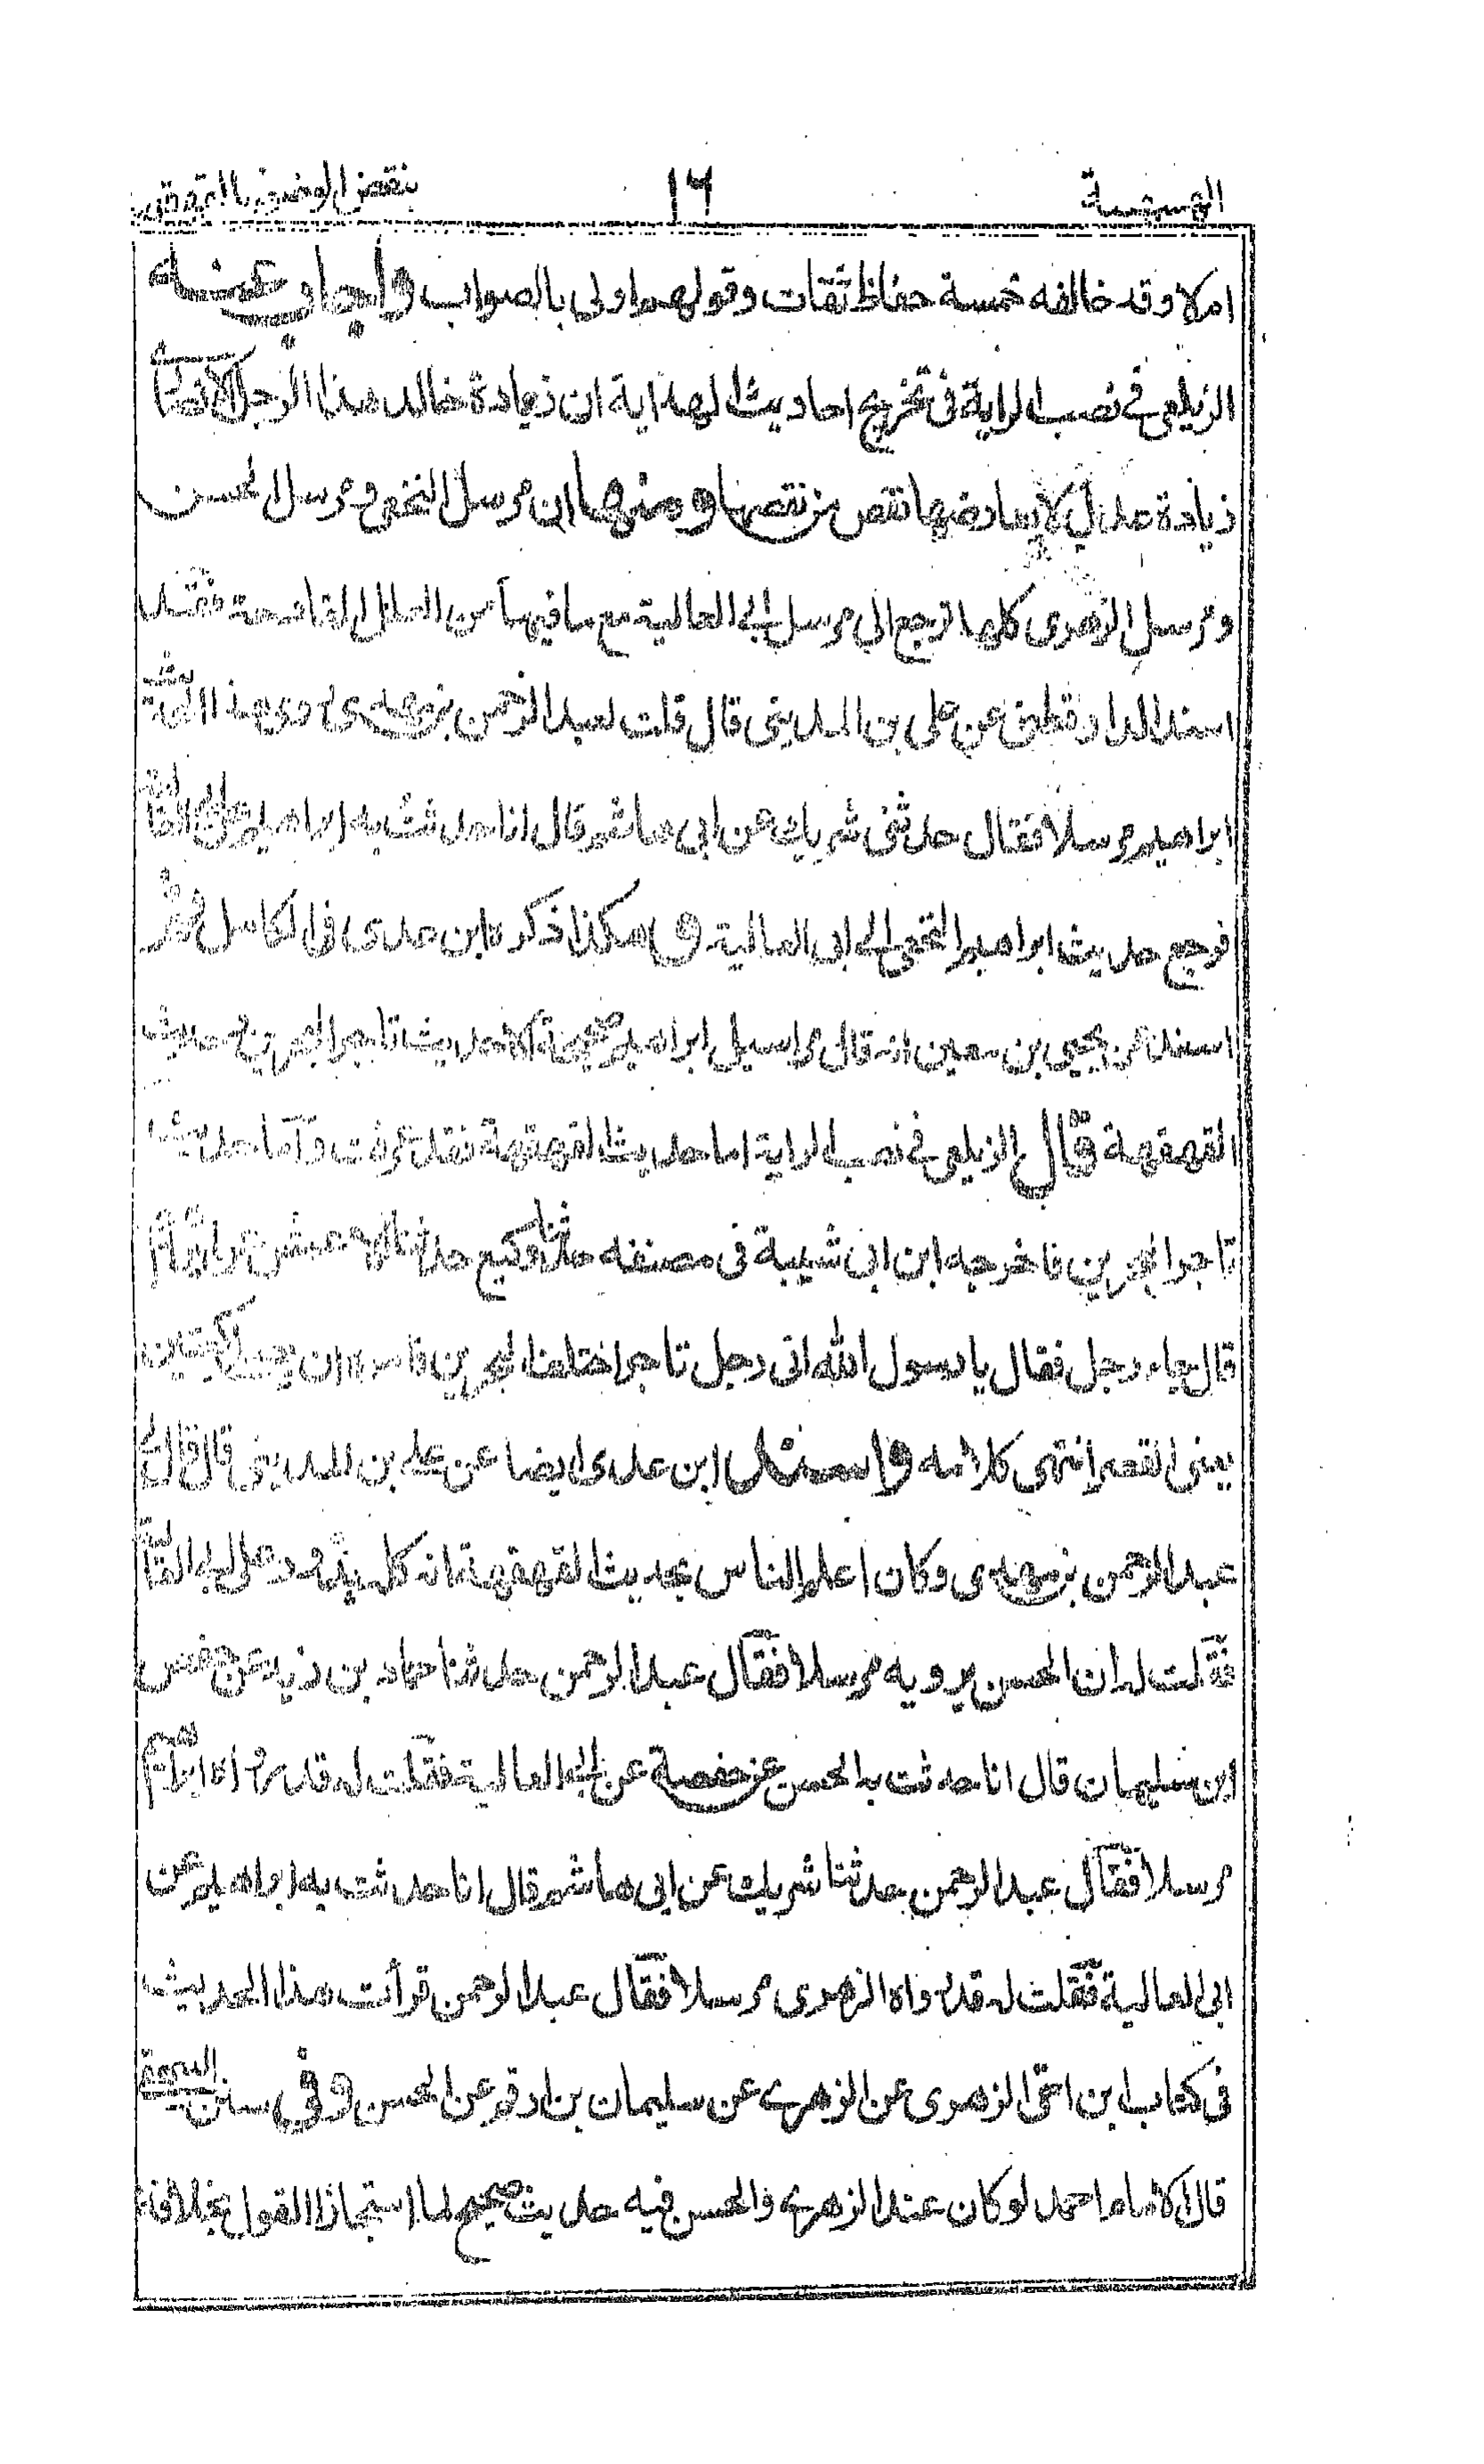 الهسهسة ١٦ بنقض الوضوء بالقهقهة
ام لا وقد خالفه خمسة حفاظ ثقات وقولهم اولى بالصواب واجاب عنه
الزيلعي في نصب الراية في تخريج احاديث الهداية ان زيادة خالد هذا الرجل الانصاري
زيادة عدل لا يعارضها نقص من نقصها ومنها ان مرسل النخعي ومرسل الحسن
ومرسل الزهري كلها ترجع الى مرسل ابي العالية مع ما فيها من العلل القادحة فقد
اسند الدارقطني عن علي بن المديني قال قلت لعبد الرحمن بن مهدي روى هذا الحديث
ابراهيم مرسلا فقال حدثني شريك عن ابي هاشم قال انا حدثت به ابراهيم عن ابي العالية
فرجع حديث ابراهيم النخعي الى ابي العالية وهكذا ذكره ابن عدي في الكامل
اسند عن يحيى بن معين انه قال مراسيل ابراهيم صحيحة الا حديث تاجر البحرين وحديث
القهقهة قال الزيلعي في نصب الراية اما حديث القهقهة فقد عرفت واما حديث
تاجر البحرين فاخرجه ابن ابي شيبة في مصنفه حدثنا وكيع حدثنا الاعمش عن ابراهيم
قال جاء رجل فقال يا رسول الله اني رجل تاجر اختلف الى البحرين فامره ان يصلي ركعتين
يعني القصر انتهى كلامه واسند ابن عدي ايضا عن علي بن المديني قال قال لي
عبد الرحمن بن مهدي وكان اعلم الناس بحديث القهقهة انه كله يدور على ابي العالية
فقلت له ان الحسن يرويه مرسلا فقال عبد الرحمن حدثنا حماد بن زيد عن حفص
ابن سليمان قال انا حدثت به الحسن عن حفصة عن ابي العالية فقلت له قد رواه ابراهيم
مرسلا فقال عبد الرحمن حدثنا شريك عن ابي هاشم قال انا حدثت به ابراهيم عن
ابي العالية فقلت له قد رواه الزهري مرسلا فقال عبد الرحمن قرأت هذا الحديث
في كتاب ابن اخي الزهري عن الزهري عن سليمان بن ارقم عن الحسن وفي سنن البيهقي
قال الامام احمد لو كان عند الزهري والحسن فيه حديث صحيح لما استجازا القول بخلافه